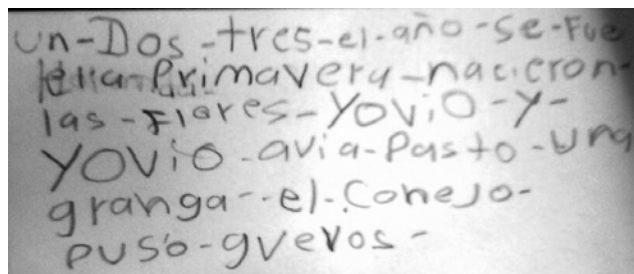 un-Dos-tres-el-año-se-Fue
Primavera-nacieron-
las-Flores-YOViO-y-
YOViO-avia-Pasto-una
granga--el-Conejo-
puso-guevos-